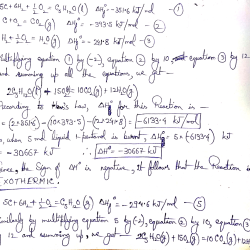 5C + 6H₂ + ½O₂ → C₅H₁₂O (l) ΔHf° = -351.6 kJ/mol - ①
C + O₂ → CO₂ (g) ΔHf° = -393.5 kJ/mol - ②
H₂ + ½O₂ → H₂O (l) ΔHf° = -241.8 kJ/mol - ③
Multiplying equation 1 by (-2), equation 2 by 10, equation ③ by 12
and summing up all the equations, we get
2C₅H₁₂O (l) + 15O₂ → 10CO₂ (g) + 12H₂O (g)
According to Hess's law, ΔHf° for this Reaction is -
= -6133.9 kJ/mol
when 5 mol liquid 1-pentanol is burnt, ΔHf° = 5 × (-6133.9) kJ
= -30667 kJ ∴ ΔH° = -30667 kJ
Since, the Sign of ΔH° is negative, it follows that the Reaction is
EXOTHERMIC.
5C + 6H₂ + ½O₂ → C₅H₁₂O (g) ΔHf° = -294.6 kJ/mol - ⑤
Similarly by multiplying equation 5 by (-2), equation ② by 10, equation ③
by 12 and summing up, we get 2C₅H₁₂O (g) + 15O₂ (g) → 10CO₂ (g) +